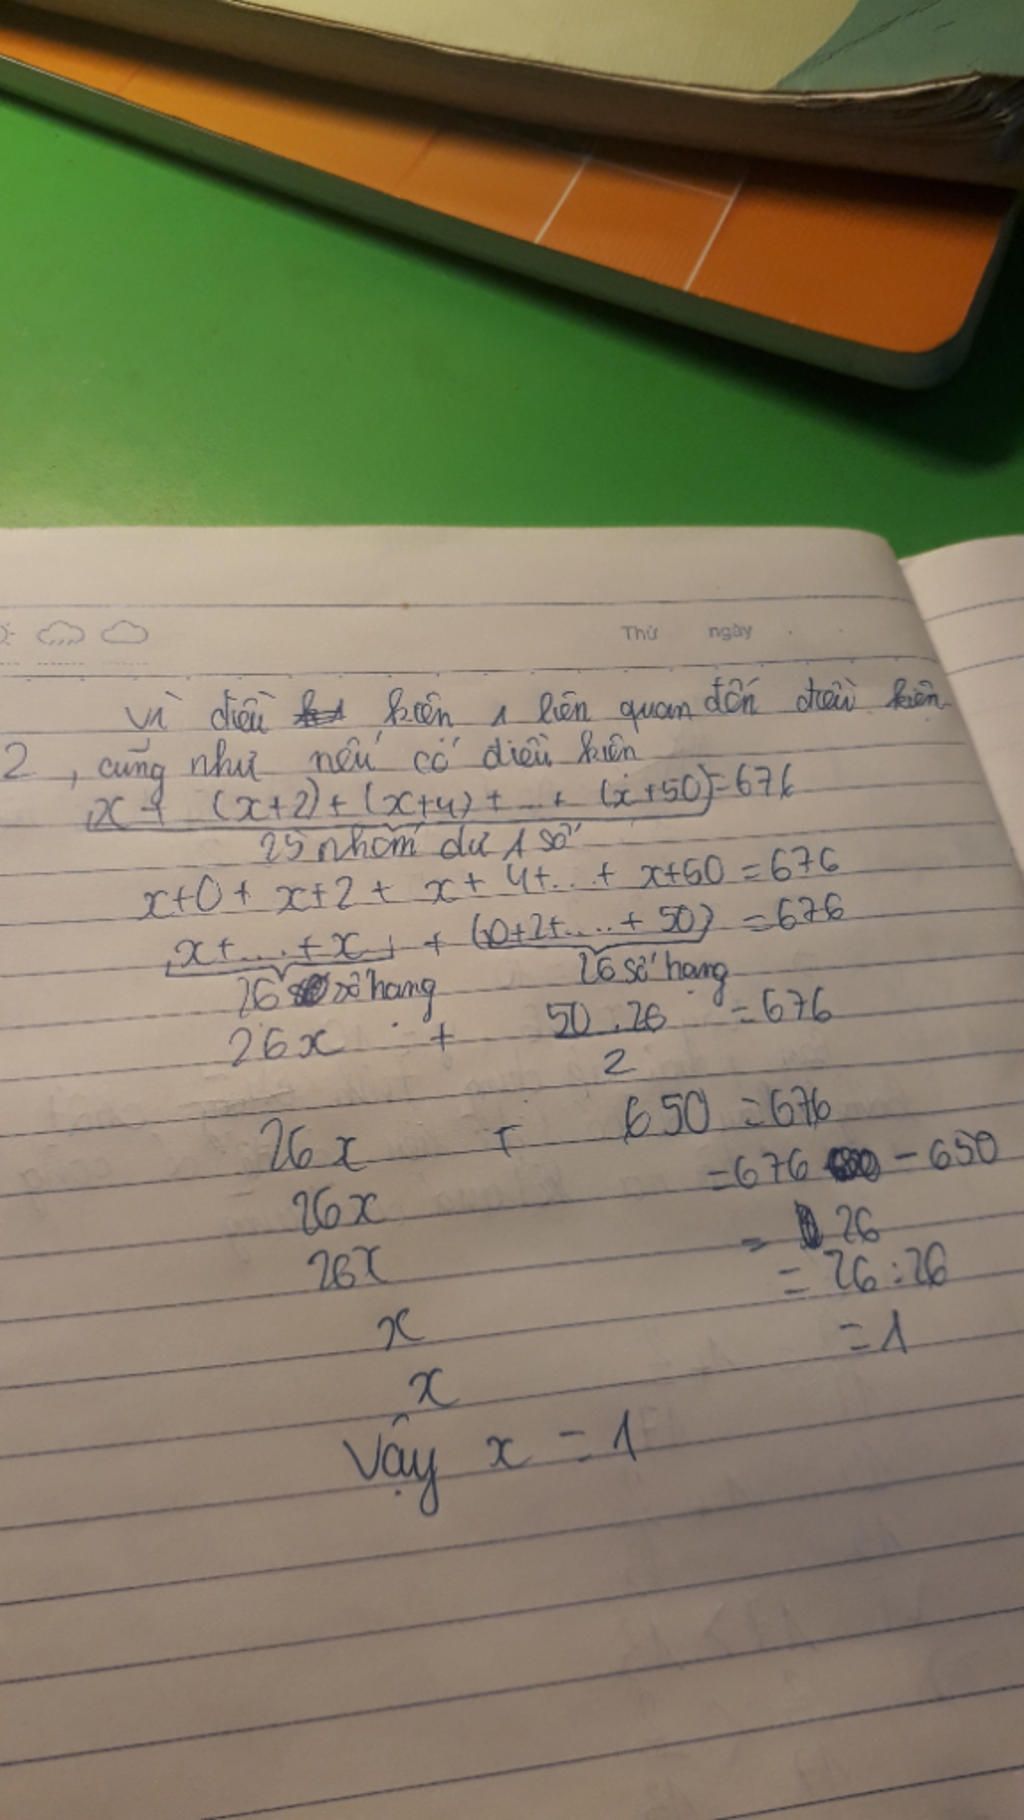 Thứ ngày
Vì điều kiện 1 liên quan đến điều kiện
2, cũng như nếu có điều kiện
x + (x+2)+(x+4)+...+ (x+50)=676
25 nhóm dư 1 số
x+0+ x+2+ x+4+...+ x+50=676
x+...+x + (0+2+....+50)=676
26 số hạng 26 số hạng
26x + 50.26 =676
2
26x + 650=676
26x =676 -650
26x = 26
x = 26:26
x =1
Vậy x = 1